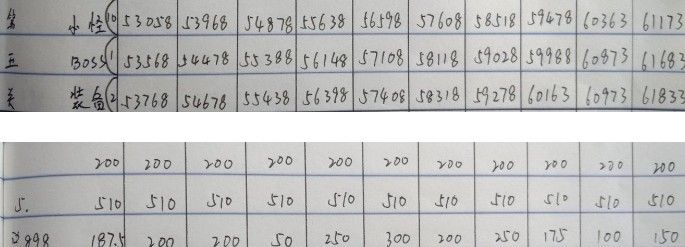 小怪 (10 53058 53968 54878 55638 56598 57608 58518 59478 60363 61173
五 BOSS (1 53568 54478 55388 56148 57108 58118 59028 59988 60873 61683
关 装备 (2 53768 54678 55438 56398 57408 58318 59278 60163 60973 61833
200 200 200 200 200 200 200 200 200 200 200
5. 510 510 510 510 510 510 510 510 510 510 510
187.5 200 200 50 250 300 200 250 175 100 150